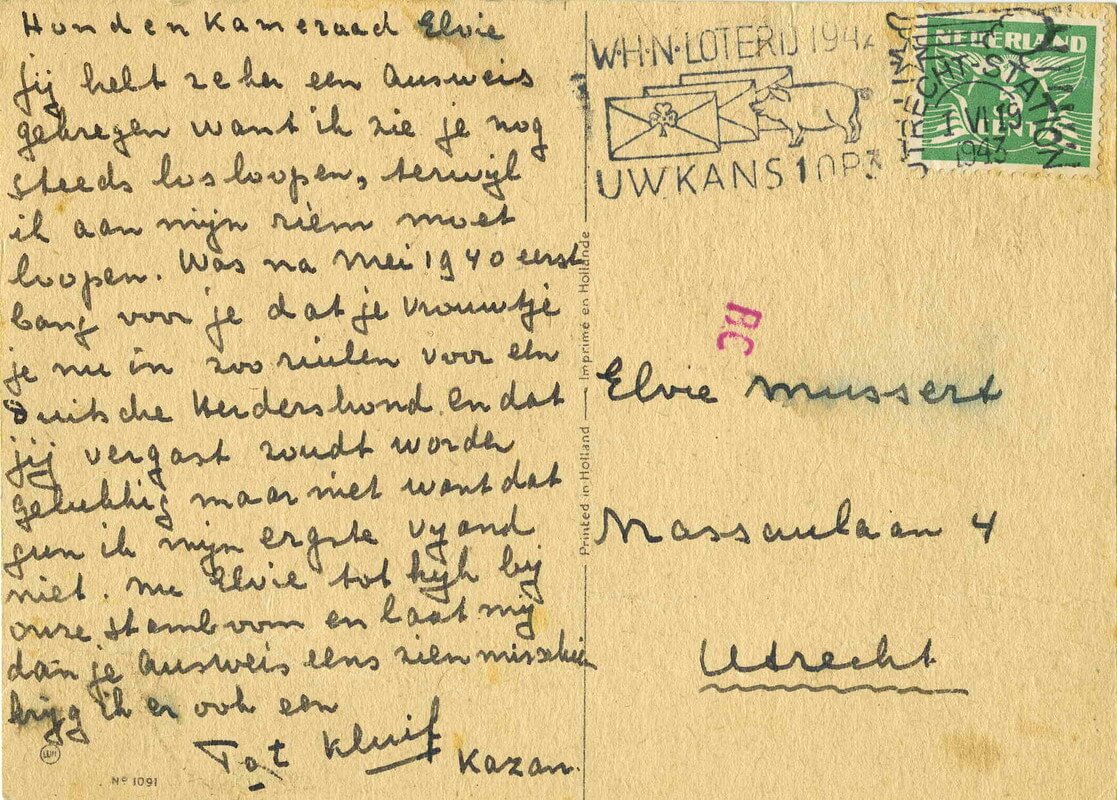 Hondenkameraad Elvie
jij hebt zeker een Ausweis
gekregen want ik zie je nog
steeds los loopen, terwijl
ik aan mijn riem moet
loopen. Was na Mei 1940 eerst
bang voor je dat je vrouwtje
je nu in zoo ruilen voor een
Duitsche Herdershond en dat
jij vergast zoudt worden
gelukkig maar niet want dat
gun ik mijn ergste vyand
niet. nu Elvie tot kijk bij
onze stamboom en laat mij
dan je Ausweis eens zien misschien
krijg ik er ook een
Tot Kluif
Kazan.
No 1091
Printed in Holland — Imprimé en Hollande
W·H·N·LOTERIJ 194
UW KANS 1 OP 3
UTRECHT-STATION
1 VI 19
1943
NEDERLAND
CENT
BC
Elvie Mussert
Nassaulaan 4
Utrecht